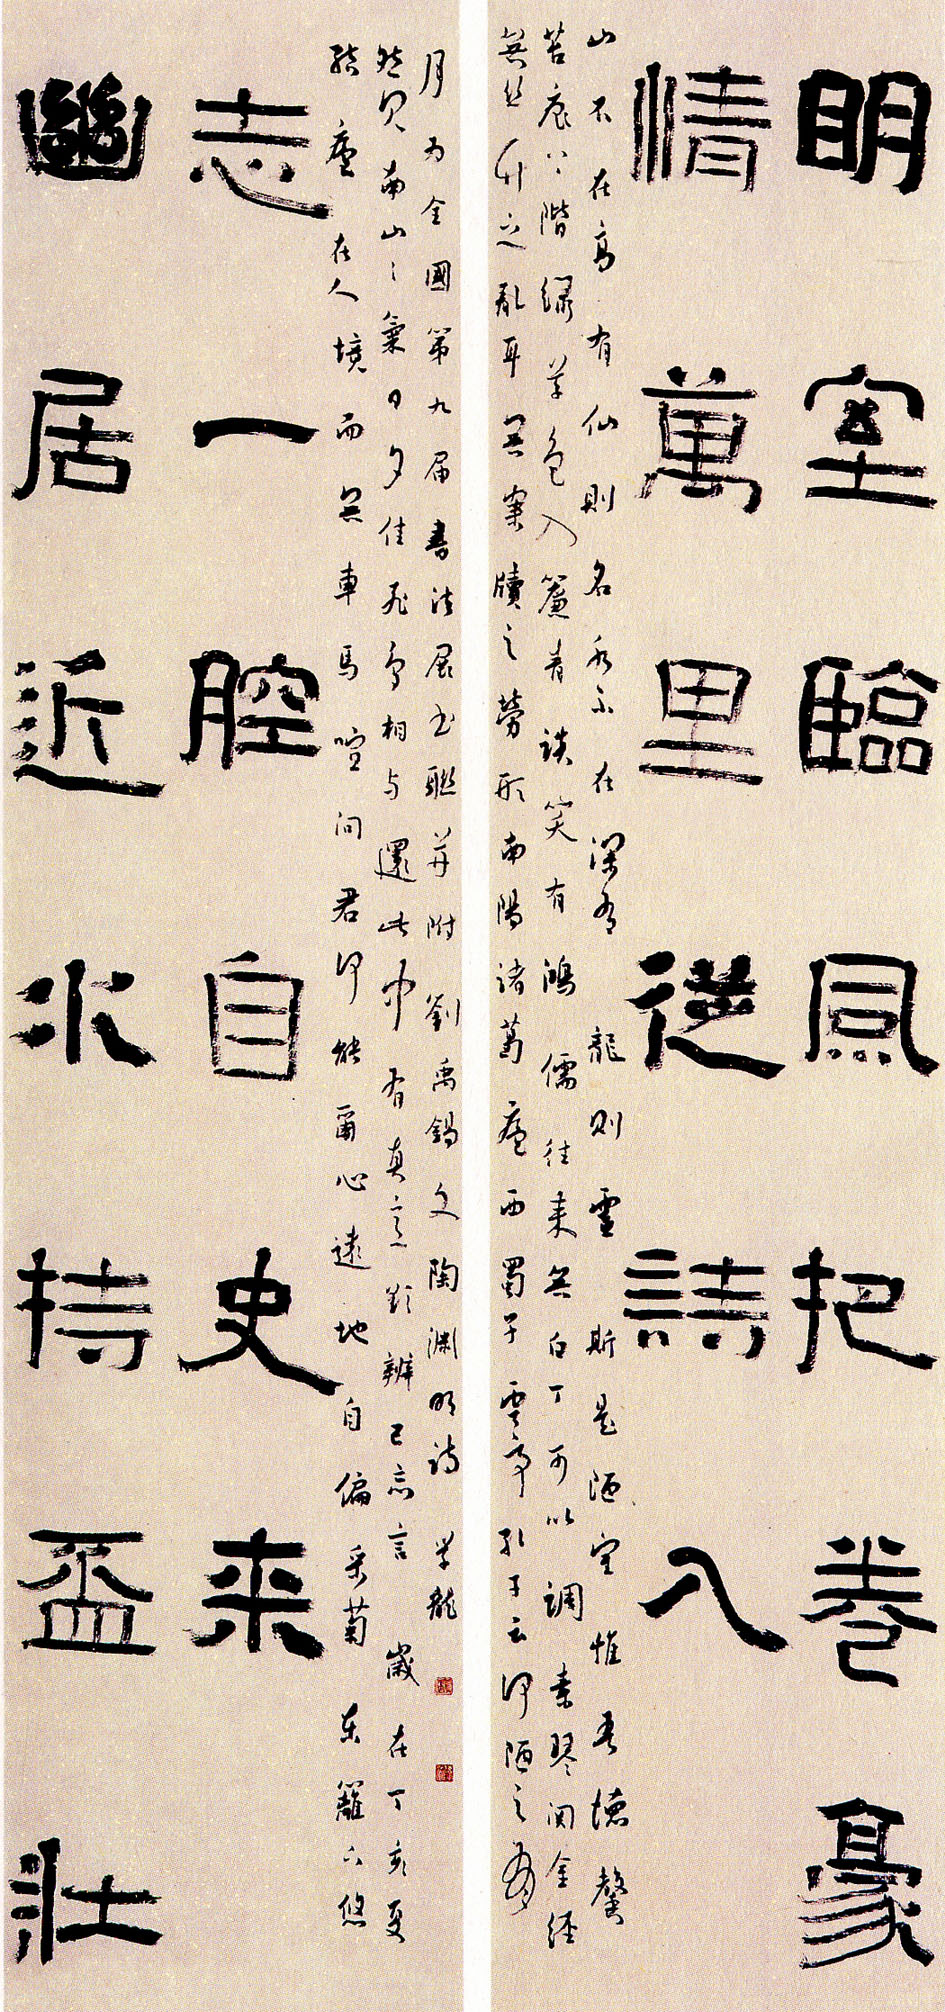 明室臨風把卷豪
情萬里從詩入
山不在高有仙則名水不在深有龍則靈斯是陋室惟吾德馨
苔痕上階緑草色入簾青談笑有鴻儒往来無白丁可以調素琴閱金經
無絲竹之亂耳無案牘之勞形南陽諸葛廬西蜀子雲亭孔子云何陋之有
幽居近水持盃壯
志一腔自史来
結廬在人境而無車馬喧問君何能爾心遠地自偏采菊東籬下悠
然見南山〻氣日夕佳飛鳥相與還此中有真意欲辨已忘言歲在丁亥夏
月為全國第九屆書法展書聯并附劉禹錫文陶淵明詩 學龍